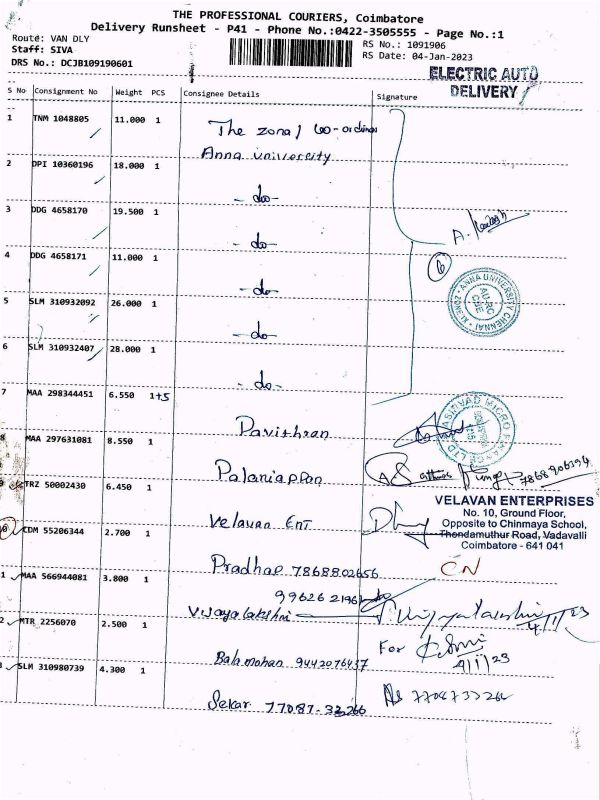 THE PROFESSIONAL COURIERS, Coimbatore
Delivery Runsheet - P41 - Phone No.:0422-3505555 - Page No.:1
Route: VAN DLY
Staff: SIVA
DRS No.: DCJB109190601
RS No.: 1091906
RS Date: 04-Jan-2023
ELECTRIC AUTO
DELIVERY
S No Consignment No Weight PCS Consignee Details Signature
1 TNM 1048805 11.000 1 The zonal co-ordina
Anna University
2 DPI 10360196 18.000 1 - do -
3 DDG 4658170 19.500 1 - do -
4 DDG 4658171 11.000 1 - do -
5 SLM 310932092 26.000 1 - do -
6 SLM 310932407 28.000 1 - do -
A.
6
ANNA UNIVERSITY CHENNAI
7 MAA 298344451 6.550 1+5 Pavithran
8 MAA 297631081 8.550 1 Palaniappan
7868906194
9 TRZ 50002430 6.450 1 Velavan Ent
VELAVAN ENTERPRISES
No. 10, Ground Floor,
Opposite to Chinmaya School,
Thondamuthur Road, Vadavalli
Coimbatore - 641 041
0 CDM 55206344 2.700 1 Pradhap 7868802656
CN
1 MAA 566944081 3.800 1 Vijayalakshmi
4/1/23
2 MTR 2256070 2.500 1 Balamohan 9442076437
For
4/1/23
3 SLM 310980739 4.300 1 Sekar 77087-33266